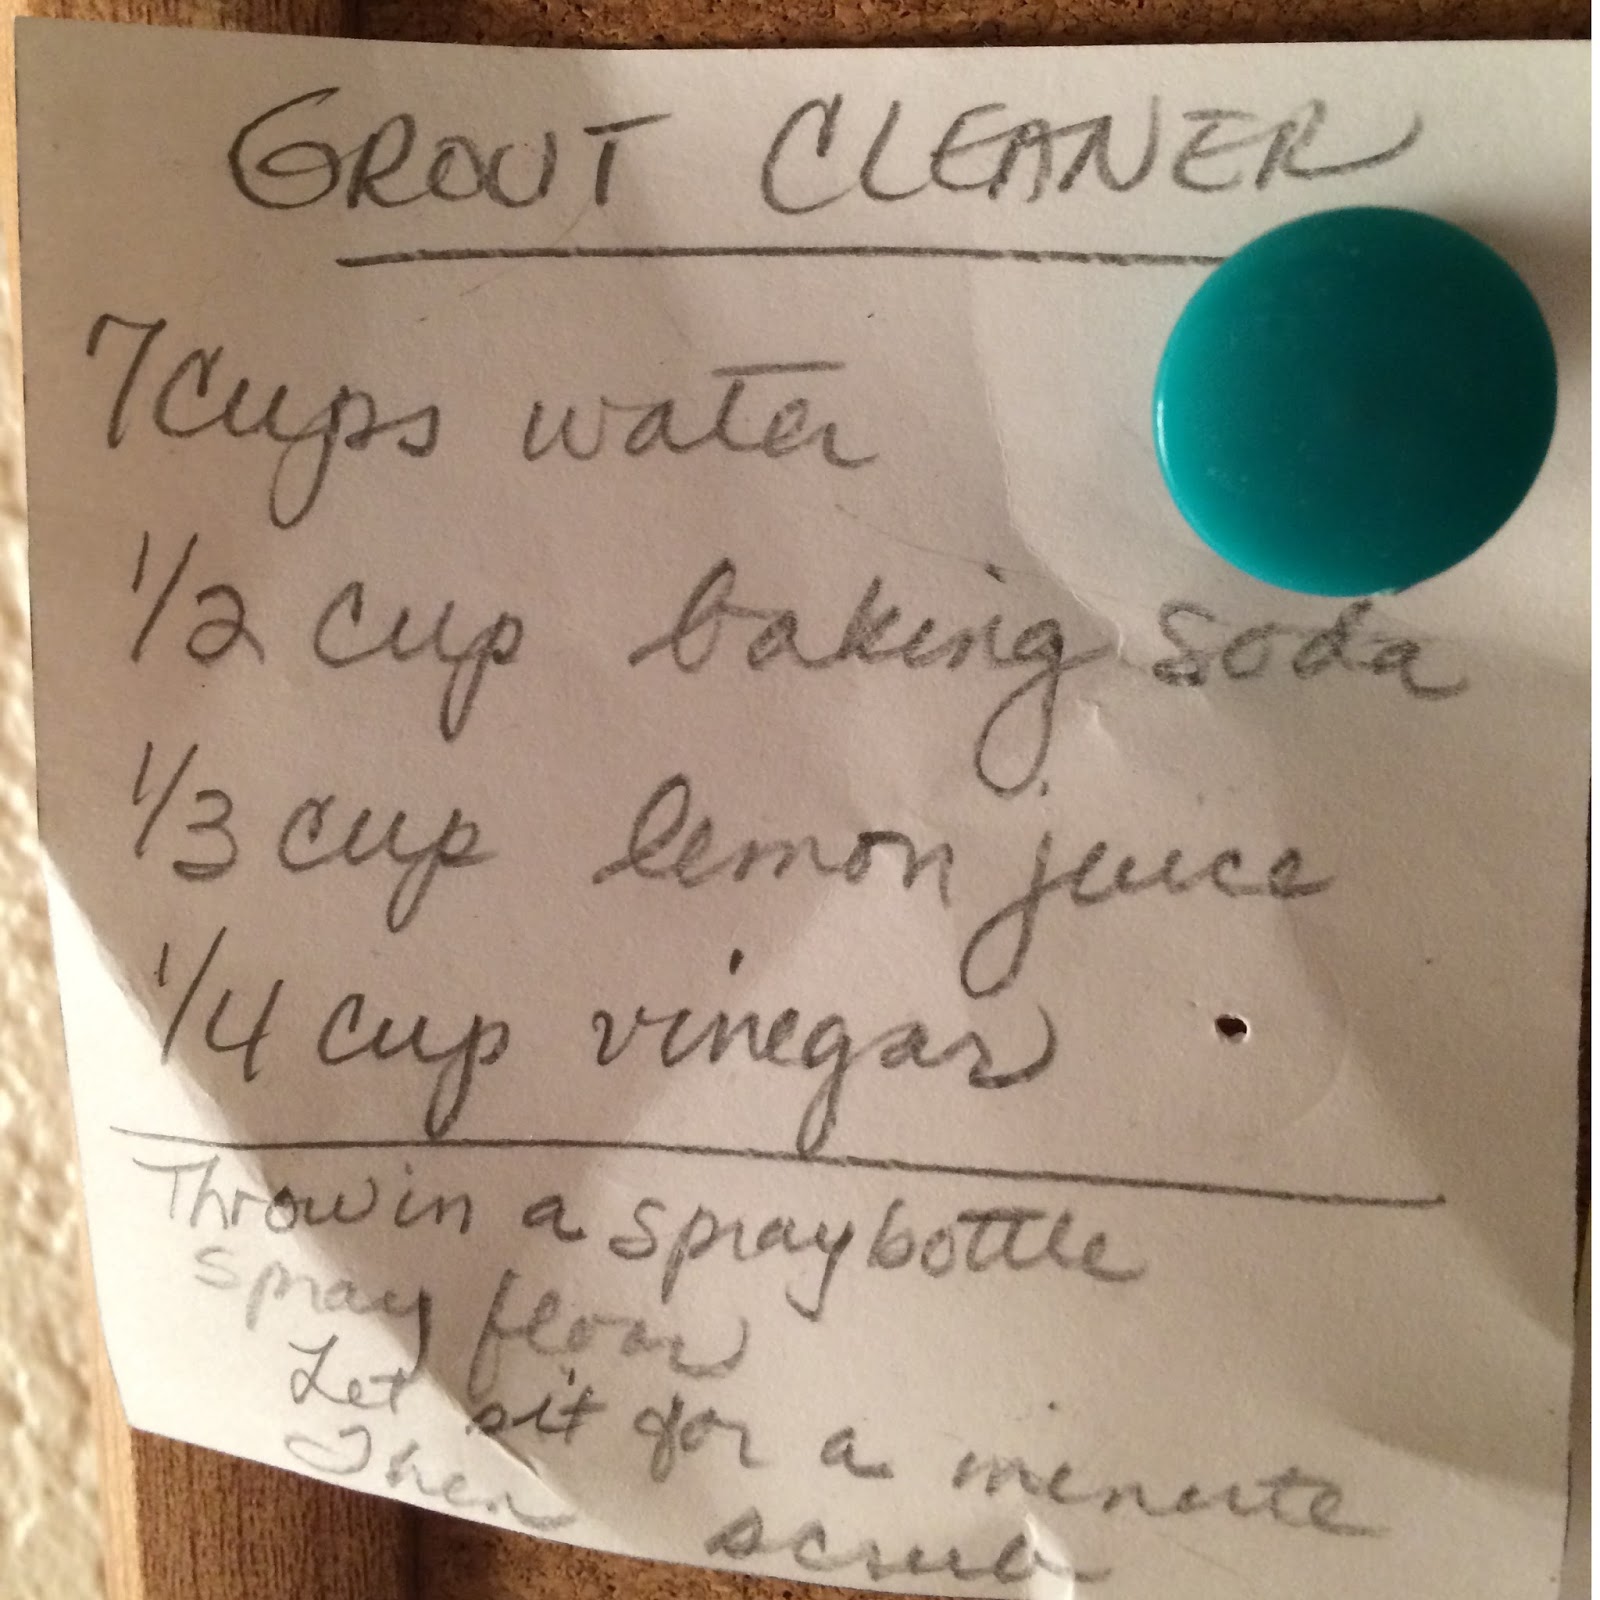 GROUT CLEANER
7 cups water
1/2 cup baking soda
1/3 cup lemon juice
1/4 cup vinegar
Throw in a spray bottle
Spray floor
Let sit for a minute
Then scrub